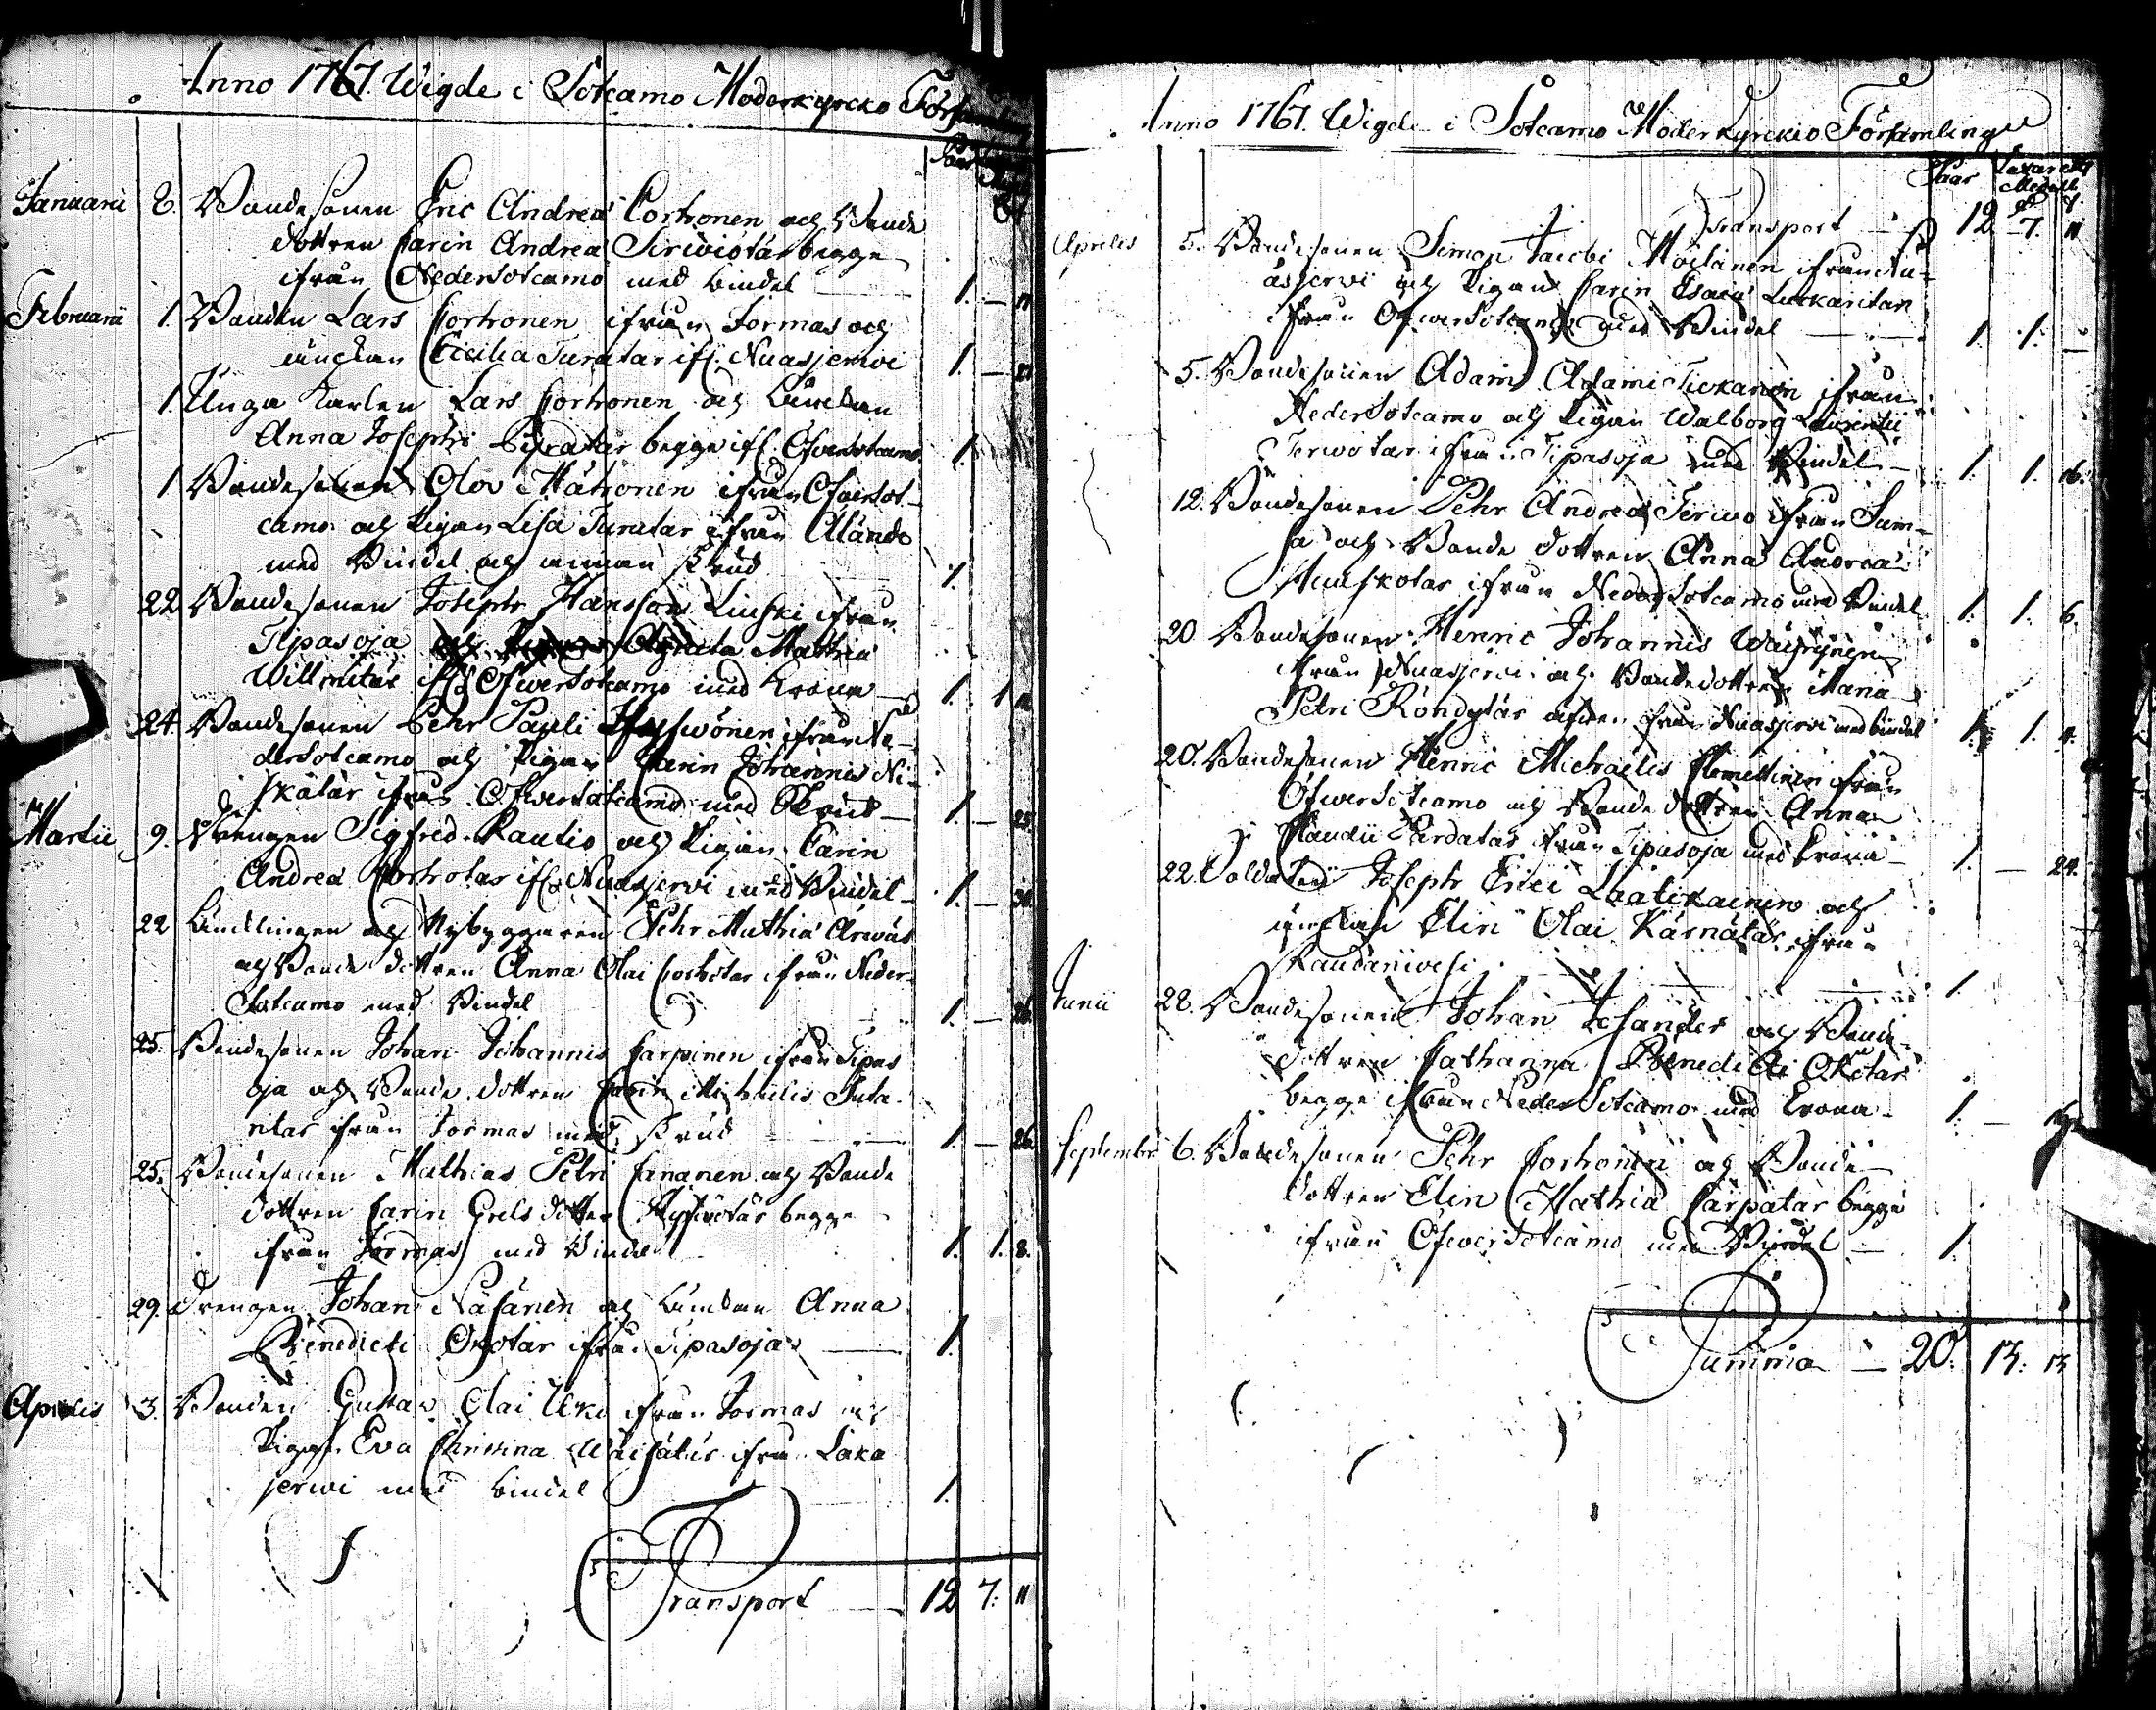 Anno 1767. Wigde i Sotcamo Moderkyrcko Församling
Paar
Januarii 8. Bondesonen Eric Andreæ Corhonen och Bonde
dottren Carin Andreæ Sirwiotar begge
ifrån Nedersotcamo med bindel 1. —
Februarii 1. Bonden Lars Corhonen ifrån Jormas och
änckan Cicilia Turutar ifr. Nuasjerwi 1. —
1. Unga Karlen Lars Corhonen och Änckan
Anna Josephi begge ifr. Öfwersotcamo 1.
1 Bondesonen Olov Mähönen ifrån Öfwersot-
camo och Pigan Lisa Turutar ifrån Alande
med Bindel och annan Skrud 1.
22 Bondesonen Joseph Hansson Liuski ifrån
Tipasoja och Pigan Agneta Mathiæ
Willmitar ifr. Öfwersotcamo med Krona 1. 1
24. Bondesonen Pehr Pauli Hyfwönen ifrån Ne-
dersotcamo och Pigan Carin Johannis Ni-
skatar ifrån Öfwersotcamo med Skrud 1. — 25.
Martii 9. Drengen Sigfred Rautio och Pigan Carin
Andreæ Corhotar ifr. Nuasjerwi med Bindel 1. — 30.
22 Encklingen och Nybyggaren Pehr Mathiæ Arwas
och Bonde dottren Anna Olai Corhotar ifrån Neder-
Sotcamo med Bindel 1. — 26.
25. Bondesonen Johan Johannis Carpinen ifrån Tipas
oja och Bonde dottren Carin Michaelis Juta-
ntar ifrån Jormas med Skrud 1. — 26.
25. Bondesonen Mathias Petri Cananen och Bonde
dottren Carin Grels dotter Hyfwötär begge
ifrån Jormas med Bindel 1. 1. 8.
29. Drengen Johan Näfänen och Änckan Anna
Benedicti Okotar ifrån Tipasoja 1.
Aprilis 3. Bonden Gustav Olai Uko ifrån Jormas och
Pigan Eva Christina Wäisätär ifrån Laka
jerwi med bindel 1.
Transport 12 7. 11
Anno 1767. Wigde i Sotcamo Moder Kyrckio Församling
Paar
Transport 12. 7. 11
Aprilis 5. Bondesonen Simon Jacobi Möilänen ifrån Nu-
asjerwi och Pigan Carin Esaiæ Luckaritar
ifrån Öfwersotcamo med Bindel 1. 1. —
5. Bondesonen Adam Adami Tickanen ifrån
Nedersotcamo och Pigan Walborg Laurentii
Terwotar ifrån Tipasoja med Bindel 1. 1. 16.
12. Bondesonen Pehr Andreæ Terwo ifrån Sum-
sa och Bonde dottren Anna Andreæ
Huuskotar ifrån Nedersotcamo med Bindel 1. 1. 6.
20 Bondesonen Henric Johannis Wäyrynen
ifrån Nuasjerwi och Bondedottren Maria
Petri Röndytär äfwen ifrån Nuasjerwi med bindel 1. 1. 4.
20. Bondesonen Henric Michaelis Clemettinen ifrån
Öfwersotcamo och Bonde dottren Anna
Claudii Pardatar ifrån Tipasoja med Krona 1. — 24.
22. Soldaten Joseph Erici Laatikainen och
änckan Elin Olai Kärnätär ifrån
Raudaniwesi 1.
Junii 28. Bondesonen Johan Tesander och Bonde
dottren Catharina Benedicti Okotar
begge ifrån Neder Sotcamo med Krona 1. —
September 6. Bondesonen Pehr Corhonen och Bonde
dottren Elin Mathiæ Carpatar begge
ifrån Öfwersotcamo med Bindel 1.
Summa 20. 13. 13